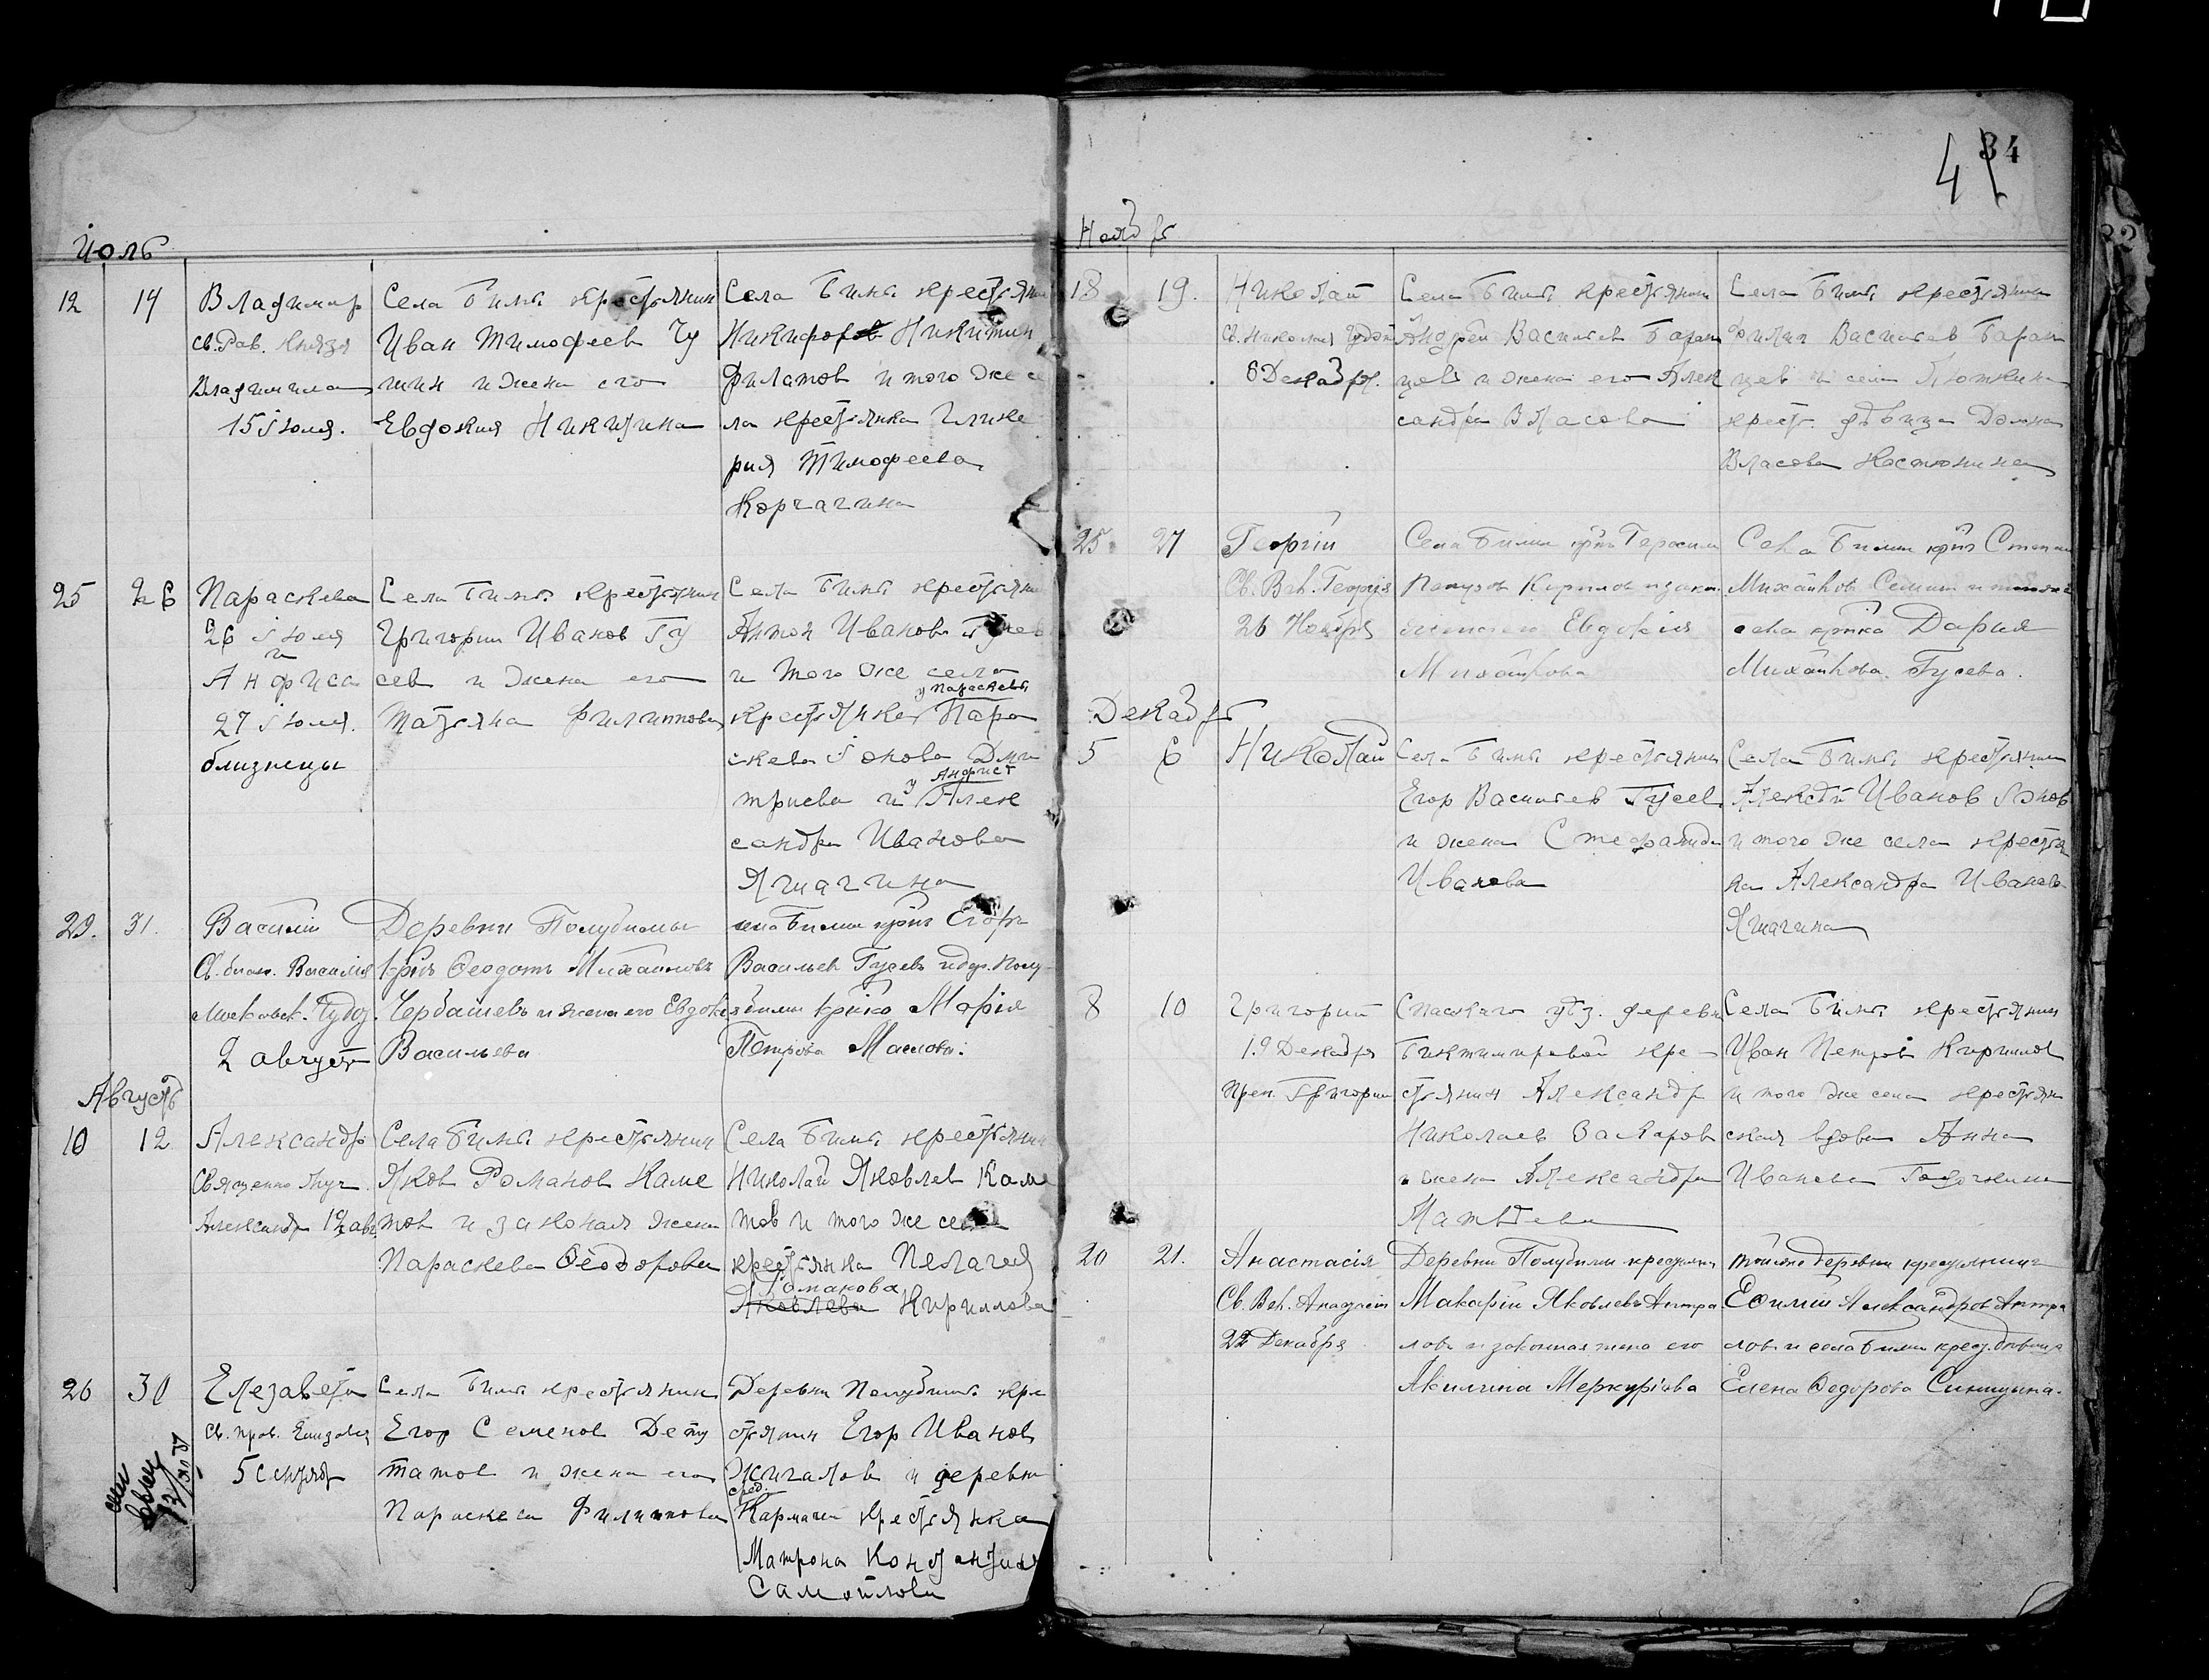 34
4
Июль
12 14 Владимир
св. Рав. Князя
Владимира
15 Июля.
Села Бимы крестьянин
Иван Тимофеев Чу
шин и жена его
Евдокия Никитина
Села Бимы крестьянин
Никифоров Никитин
Филатов и того же се
ла крестьянка Глике
рия Тимофеева
Корчагина
25 26 Параскева
26 Июля
и
Анфиса
27 Июля.
близнецы
Села Бимы крестьянин
Григорий Иванов Гу
сев и жена его
Татьяна Филиппова
Села Бимы крестьянин
Антон Иванов
и того же села
у Параскевы
крестьянка Пара
скева Ионова Дми
у Анфисы
триева и Алек
сандра Иванова
Ягшагина
29. 31. Василий
Св. блаж. Василия
Московск. Чудот.
2 август
Деревни Полубимы
кр-нъ Феодотъ Михаиловъ
Чербашевъ и жена его Евдокия
Васильева
села Бимы кр-нъ Егоръ
Васильев Гусевъ и дер. Полу-
бимы кр-нка Мария
Петрова Маслова.
Августъ
10 12 Александр
Священно муч.
Александр 12 авг.
Села Бимы крестьянин
Яков Романов Каме
тов и законая жена
Параскева Феодорова
Села Бимы крестьянин
Николай Яковлев Каме
тов и того же села
крестьянка Пелагея
Романова
Яковлева Кириллова
26 30 Елезавета
Св. прав. Елизавета
5 Сентяб
Села Бимы крестьянин
Егор Семенов Дету
татов и жена его
Параскева Филиппова
Деревни Полубимы кре
стьянин Егор Иванов
Жигалов и деревни
сред.
Кармали крестьянка
Матрона Константина
Самойлова
Ноябрь
18 19. Николай
Св. Николая Чудот
6 Декабря.
Села Бимы крестьянин
Андрей Василев Баран
цев и жена его Алек
сандра Власова
Села Бимы крестьянин
Филип Василев Баран
цев и села
крест. девица Домна
Власова Костюнина
25 27 Георгий
Св. Вел. Георгия
26 Ноября
Села Бимы кр-нъ Герасим
Кирилов и закон.
Евдокия
Михайлова
Села Бимы кр-нъ Степан
Михайлов
села кр-нка Дария
Михайлова Гусева.
Декабрь
5 6 Николай
Села Бимы крестьянин
Егор Василев Гусев
и жена Стефанида
Иванова
Села Бимы крестьянин
Алексей Иванов Ионов
и того же села крестьян
ка Александра Иванова
Ягшагина
8 10 Григорий
19 Декабря
Преп. Григории
Спаскаго уез. деревни
Биктимировой кре-
стьянин Александр
Николаев Захаров
и жена Александра
Матвеева
Села Бимы крестьянин
Иван Петров Кирилов
и того же села крестьян
ская вдова Анна
Иванова
20 21. Анастасія
Св. Вел. Анастасіи
22 Декабря
Деревни Полубимы крестьянин
Макарій Яковлевъ Антра
повъ и законная жена его
Акилина Меркуріева
тойже деревни крестьянинъ
Ефимій Александров Антра
повъ и села Бимы крест. девица
Елена Федорова Синицына.